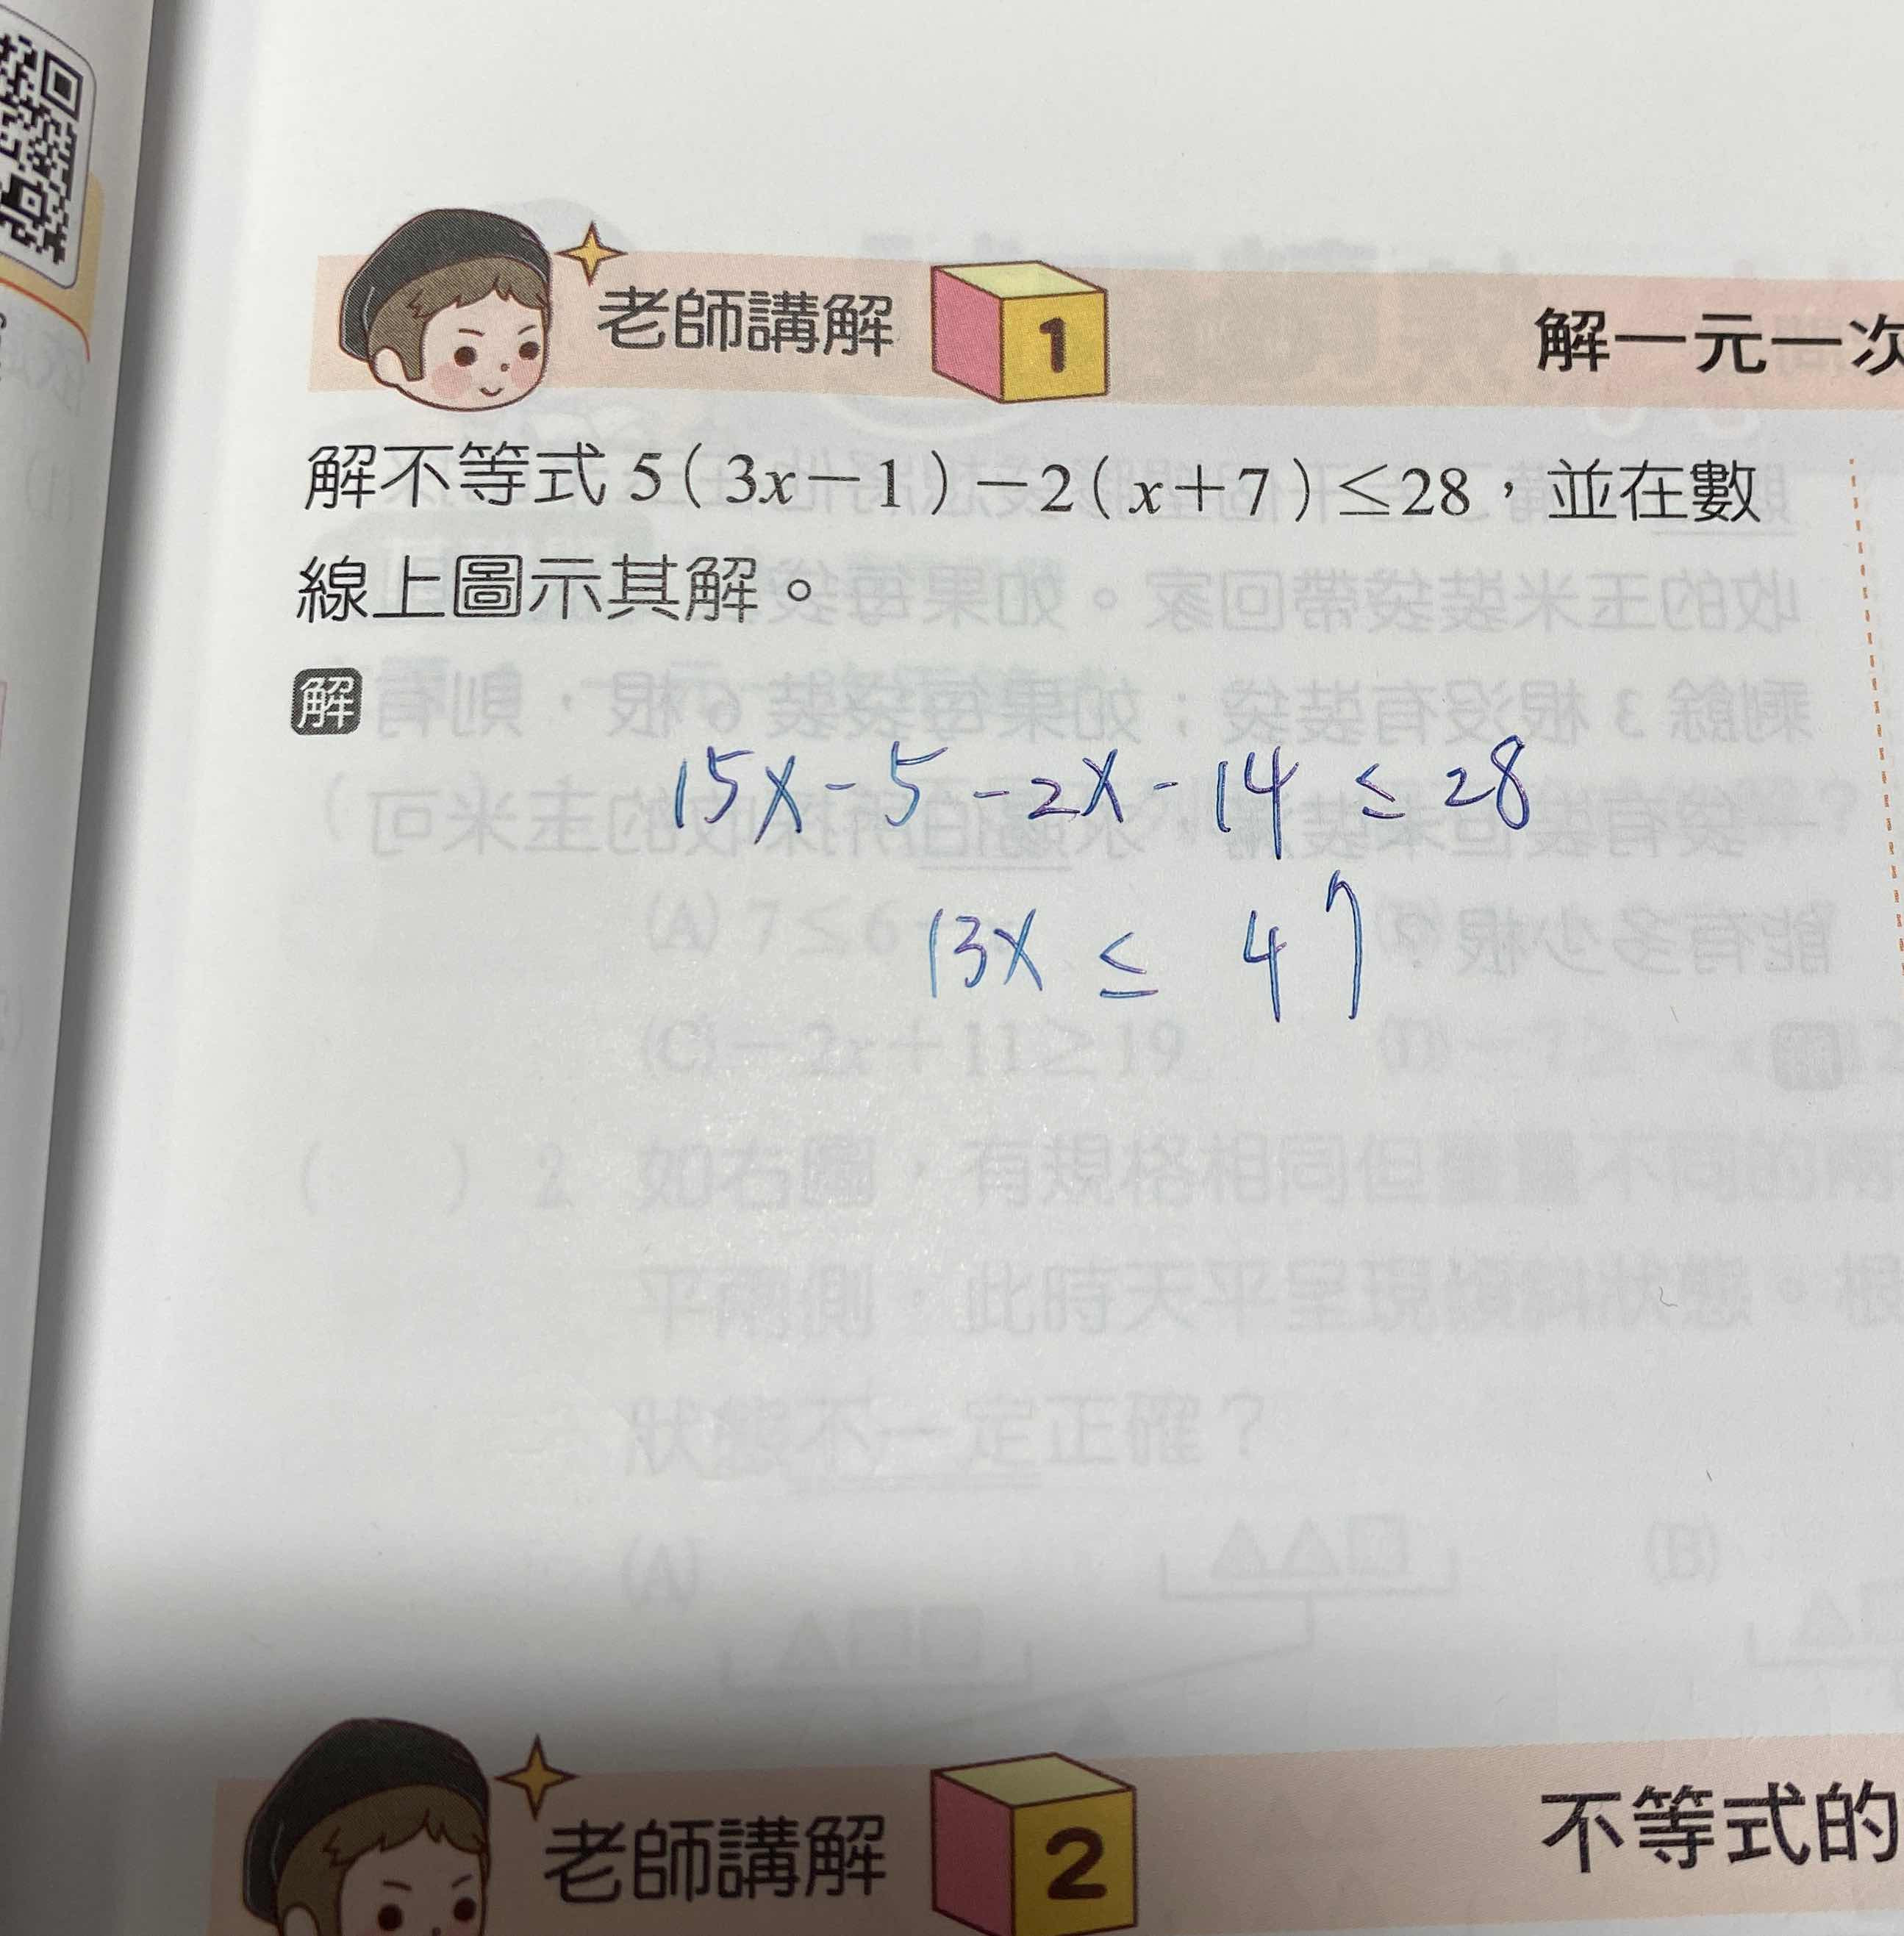 老師講解 1 解一元一次
解不等式 5(3x－1)－2(x＋7)≤28，並在數
線上圖示其解。
解
15x - 5 - 2x - 14 ≤ 28
13x ≤ 47
老師講解 2 不等式的